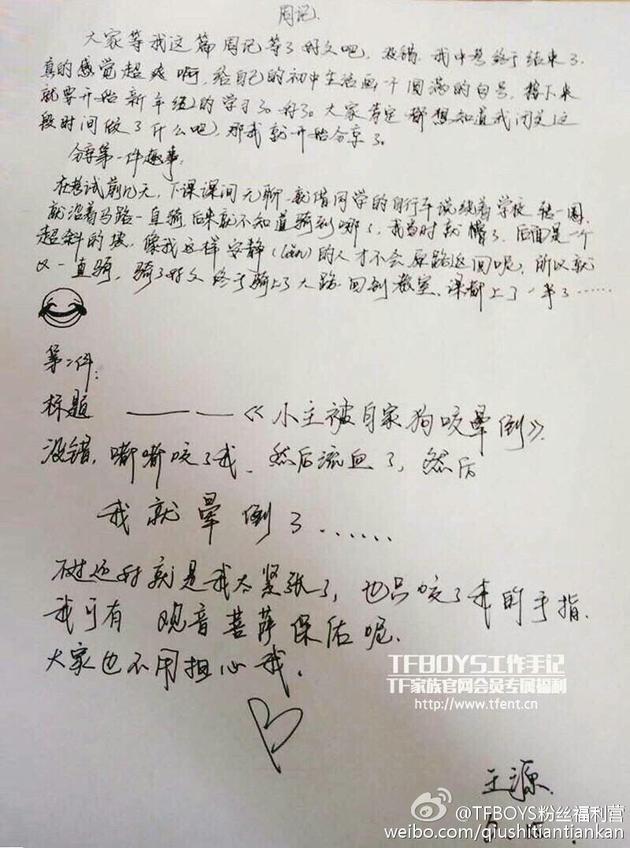 周记.
大家等我这篇周记等了好久吧, 没错. 我中考终于结束了.
真的感觉超爽啊, 给自己的初中生活画一个圆满的句号, 接下来
就要开始新年级的学习了. 好了. 大家肯定都想知道我闭关这
段时间做了什么吧, 那我就开始分享了.
分享第一件趣事:
在考试前几天, 下课课间无聊, 就借同学的自行车说绕着学校 骑一圈,
就沿着马路一直骑, 后来就不知道骑到哪了, 我当时就懵了, 后面是一个
超斜的坡, 像我这样安静(lǎn)的人才不会原路返回呢, 所以就
又一直骑, 骑了好久终于骑上了大路. 回到教室, 课都上了一半了……
第二件:
标题 ———《小主被自家狗咬晕倒》
没错, 嘶嘶咬了我. 然后流血了, 然后
我就晕倒了……
不过还好就是我太紧张了, 也只咬了我的手指.
我可有 观音菩萨保佑呢.
大家也不用担心我.
TFBOYS工作手记
TF家族官网会员专属福利
http://www.tfent.cn
王源.
@TFBOYS粉丝福利营
weibo.com/qiushitiantiankan